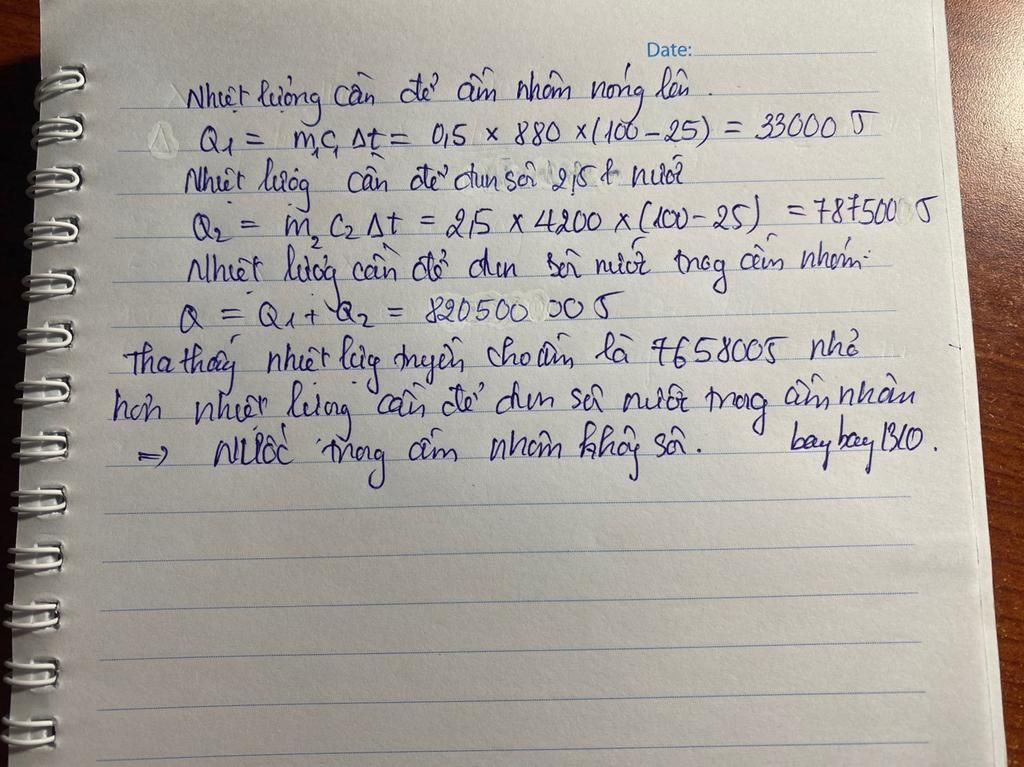 Date:
Nhiệt lượng cần để ấm nhôm nóng lên.
Q1 = m1C1 Δt = 0,5 × 880 × (100 - 25) = 33000 J
Nhiệt lượng cần để đun sôi 2,5 l nước
Q2 = m2 C2 Δt = 2,5 × 4200 × (100 - 25) = 787500 J
Nhiệt lượng cần để đun sôi nước trong ấm nhôm:
Q = Q1 + Q2 = 820500 J
Tha thấy nhiệt lượng truyền cho ấm là 765800J nhỏ
hơn nhiệt lượng cần để đun sôi nước trong ấm nhôm
=> Nước trong ấm nhôm không sôi. baybay1310.